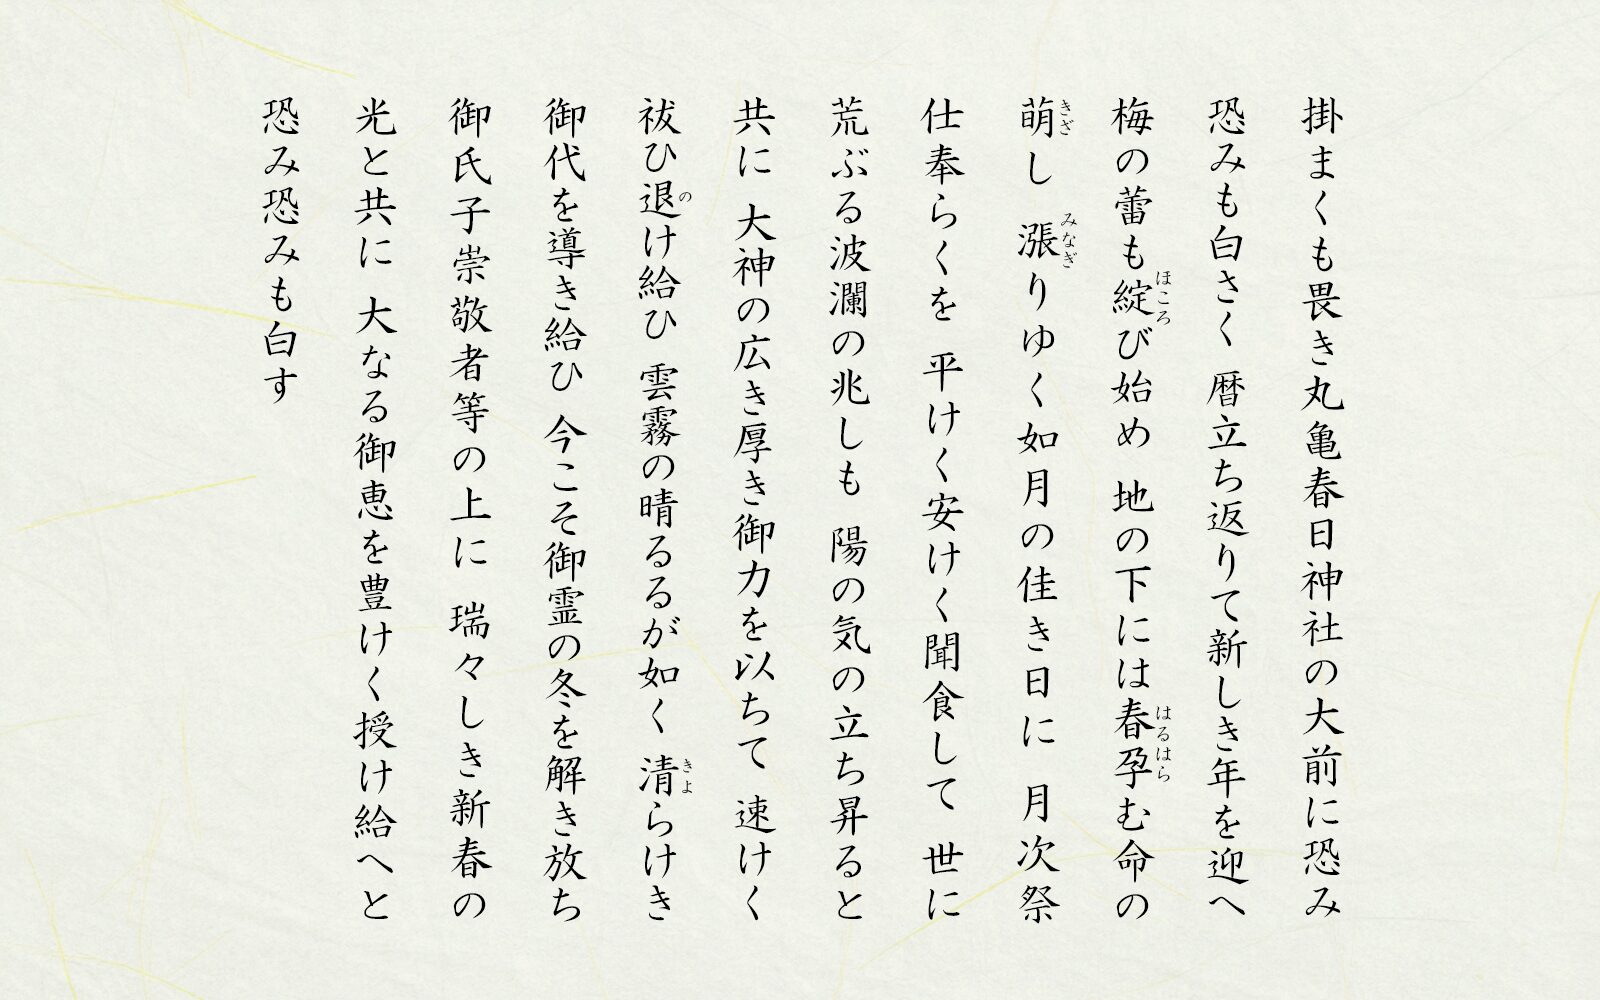 掛まくも畏き丸亀春日神社の大前に恐み
恐みも白さく 暦立ち返りて新しき年を迎へ
梅の蕾も綻び始め 地の下には春孕む命の
ほころ
はるはら
萌し 漲りゆく如月の佳き日に 月次祭
きざ
みなぎ
仕奉らくを 平けく安けく聞食して 世に
荒ぶる波瀾の兆しも 陽の気の立ち昇ると
共に 大神の広き厚き御力を以ちて 速けく
祓ひ退け給ひ 雲霧の晴るるが如く 清らけき
の
きよ
御代を導き給ひ 今こそ御霊の冬を解き放ち
御氏子崇敬者等の上に 瑞々しき新春の
光と共に 大なる御恵を豊けく授け給へと
恐み恐みも白す